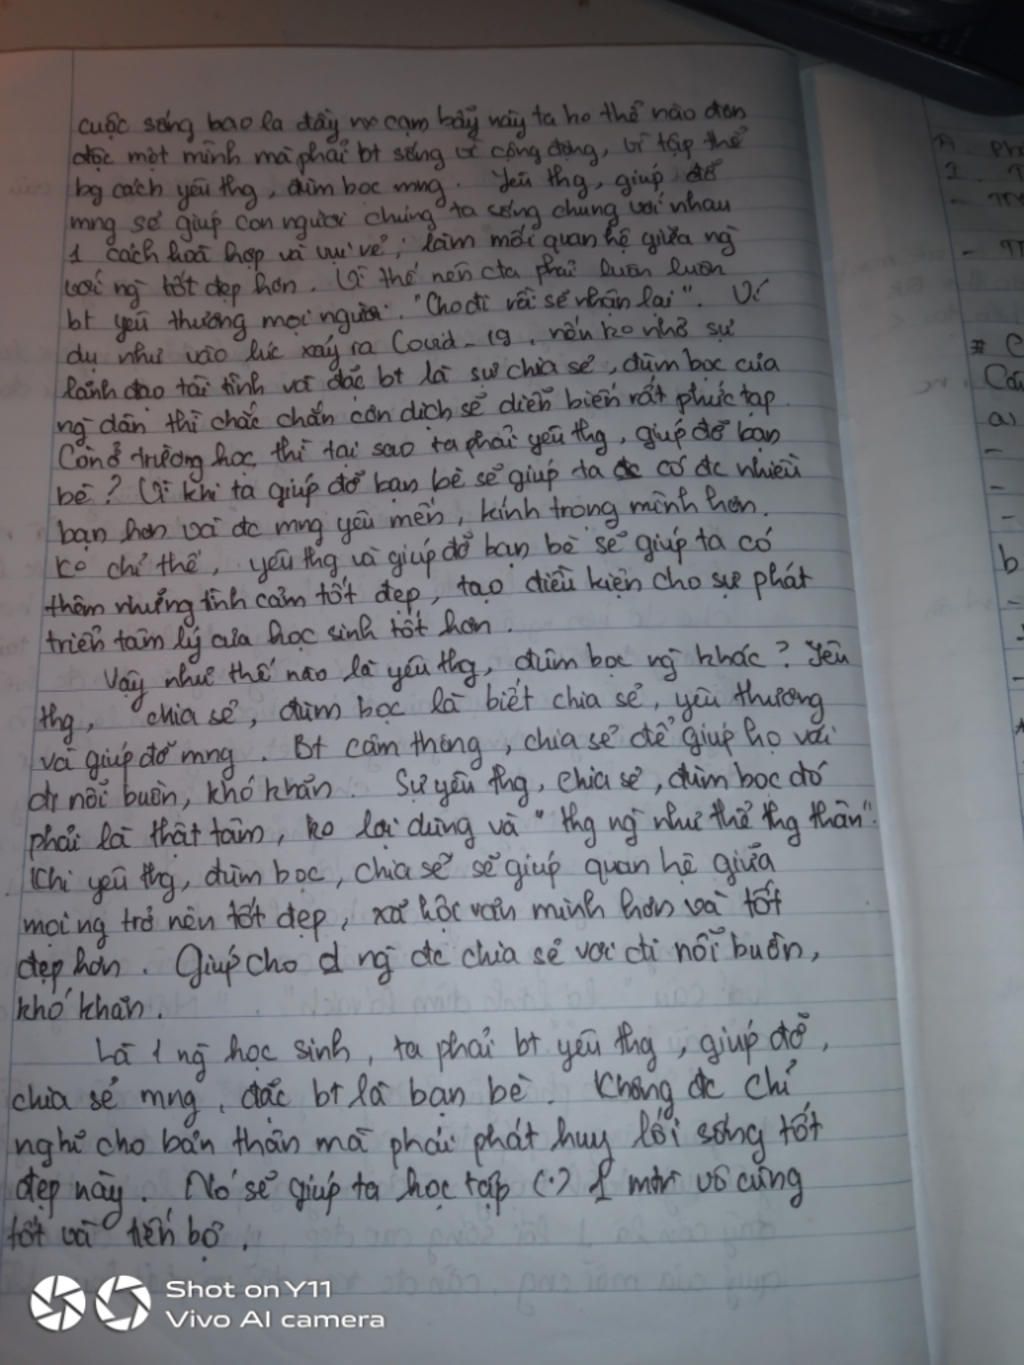 cuộc sống bao la đầy cạm bẫy này ta ko thể nào đơn
độc một mình mà phải bt sống vì cộng đồng, vì tập thể
bg cách yêu thg, đùm bọc mng. Yêu thg, giúp đỡ
mng sẽ giúp con người chúng ta sống chung với nhau
1 cách hoà hợp và vui vẻ, làm mối quan hệ giữa ng
với ng tốt đẹp hơn. Vì thế nên cta phải luôn luôn
bt yêu thương mọi người: "Cho đi rồi sẽ nhận lại". Ví
dụ như vào lúc xảy ra Covid-19, nếu ko nhờ sự
lãnh đạo tài tình và đặc bt là sự chia sẻ, đùm bọc của
ng dân thì chắc chắn cơn dịch sẽ diễn biến rất phức tạp.
Còn ở trường học thì tại sao ta phải yêu thg, giúp đỡ bạn
bè? Vì khi ta giúp đỡ bạn bè sẽ giúp ta có đc nhiều
bạn hơn và đc mng yêu mến, kính trọng mình hơn.
Ko chỉ thế, yêu thg và giúp đỡ bạn bè sẽ giúp ta có
thêm những tình cảm tốt đẹp, tạo điều kiện cho sự phát
triển tâm lý của học sinh tốt hơn.
Vậy như thế nào là yêu thg, đùm bọc ng khác? Yêu
thg, chia sẻ, đùm bọc là biết chia sẻ, yêu thương
và giúp đỡ mng. Bt cảm thông, chia sẻ để giúp họ vơi
đi nỗi buồn, khó khăn. Sự yêu thg, chia sẻ, đùm bọc đó
phải là thật tâm, ko lợi dụng và "thg ng như thể thg thân".
Khi yêu thg, đùm bọc, chia sẻ sẽ giúp quan hệ giữa
mọi ng trở nên tốt đẹp, xã hội văn minh hơn và tốt
đẹp hơn. Giúp cho ng đc chia sẻ vơi đi nỗi buồn,
khó khăn.
Là 1 ng học sinh, ta phải bt yêu thg, giúp đỡ,
chia sẻ mng, đặc bt là bạn bè. Không đc chỉ
nghĩ cho bản thân mà phải phát huy lối sống tốt
đẹp này. Nó sẽ giúp ta học tập (.) 1 mtr vô cùng
tốt và tiến bộ.
Shot on Y11
Vivo AI camera